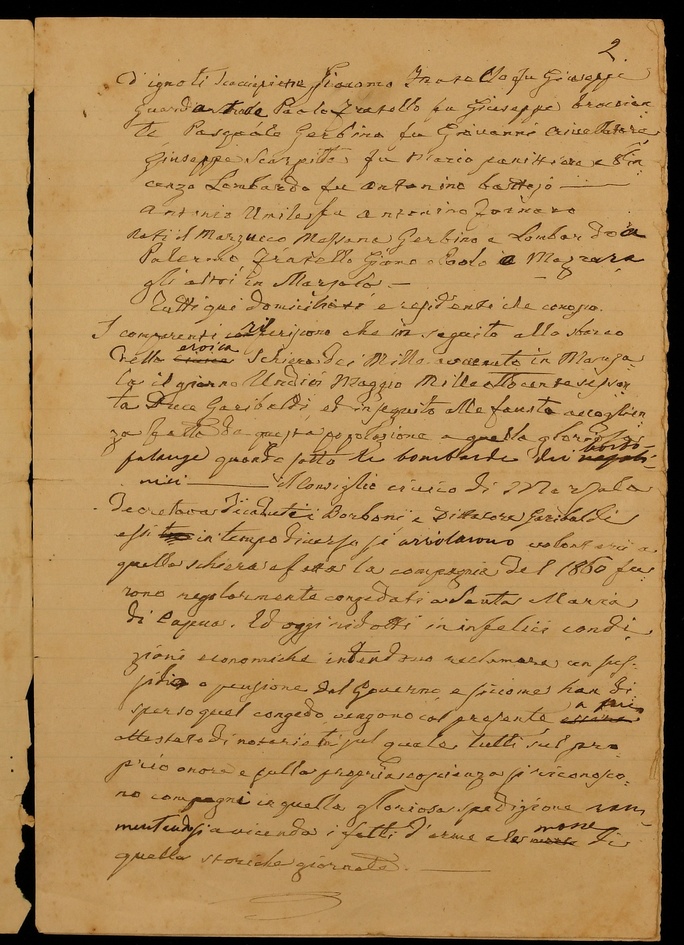 2.
d'ignoti Giacomo fu Giuseppe
Paolo Fratello fu Giuseppe braccian
te Pasquale Gerbino fu Giovanni Crivellatore
Giuseppe Scarpitta fu Mario panittiere e Vin
cenzo Lombardo fu Antonino bottajo
Antonio Umile fu Antonino fornaro
Nati il Marzucco Messana Gerbino e Lombardo a
Palermo Fratello Paolo a Mazzara
gli altri in Marsala
Tutti qui domiciliati e residenti che conosco.
I comparenti riferiscono che in seguito allo sbarco
della eroica Schiera dei Mille avvenuto in Marsa
la il giorno Undici Maggio Milleottocentosessan
ta Duce Garibaldi, ed in seguito alle fauste accoglien
ze fatte da questa popolazione a quella gloriosa
falange quando sotto le bombarde dei borbo
nici il Consiglio civico di Marsala
Decretava Decaduti i Borboni e Dittatore Garibaldi
essi in tempo diverso si arrolarono volontarii a
quella schiera e fatta la campagna del 1860 fu
rono regolarmente congedati a Santa Maria
di Capua. Ed oggi ridotti in infelici condi
zioni economiche intendono reclamare un sus
sidio o pensione dal Governo, e siccome han di
sperso quel congedo vengono col presente
attestato di notorietà sul quale tutti sul pro
prio onore e sulla propria coscienza si riconosco
no compagni in quella gloriosa spedizione ram
mentandosi a vicenda i fatti d'arme e le mosse di
quelle storiche giornate.